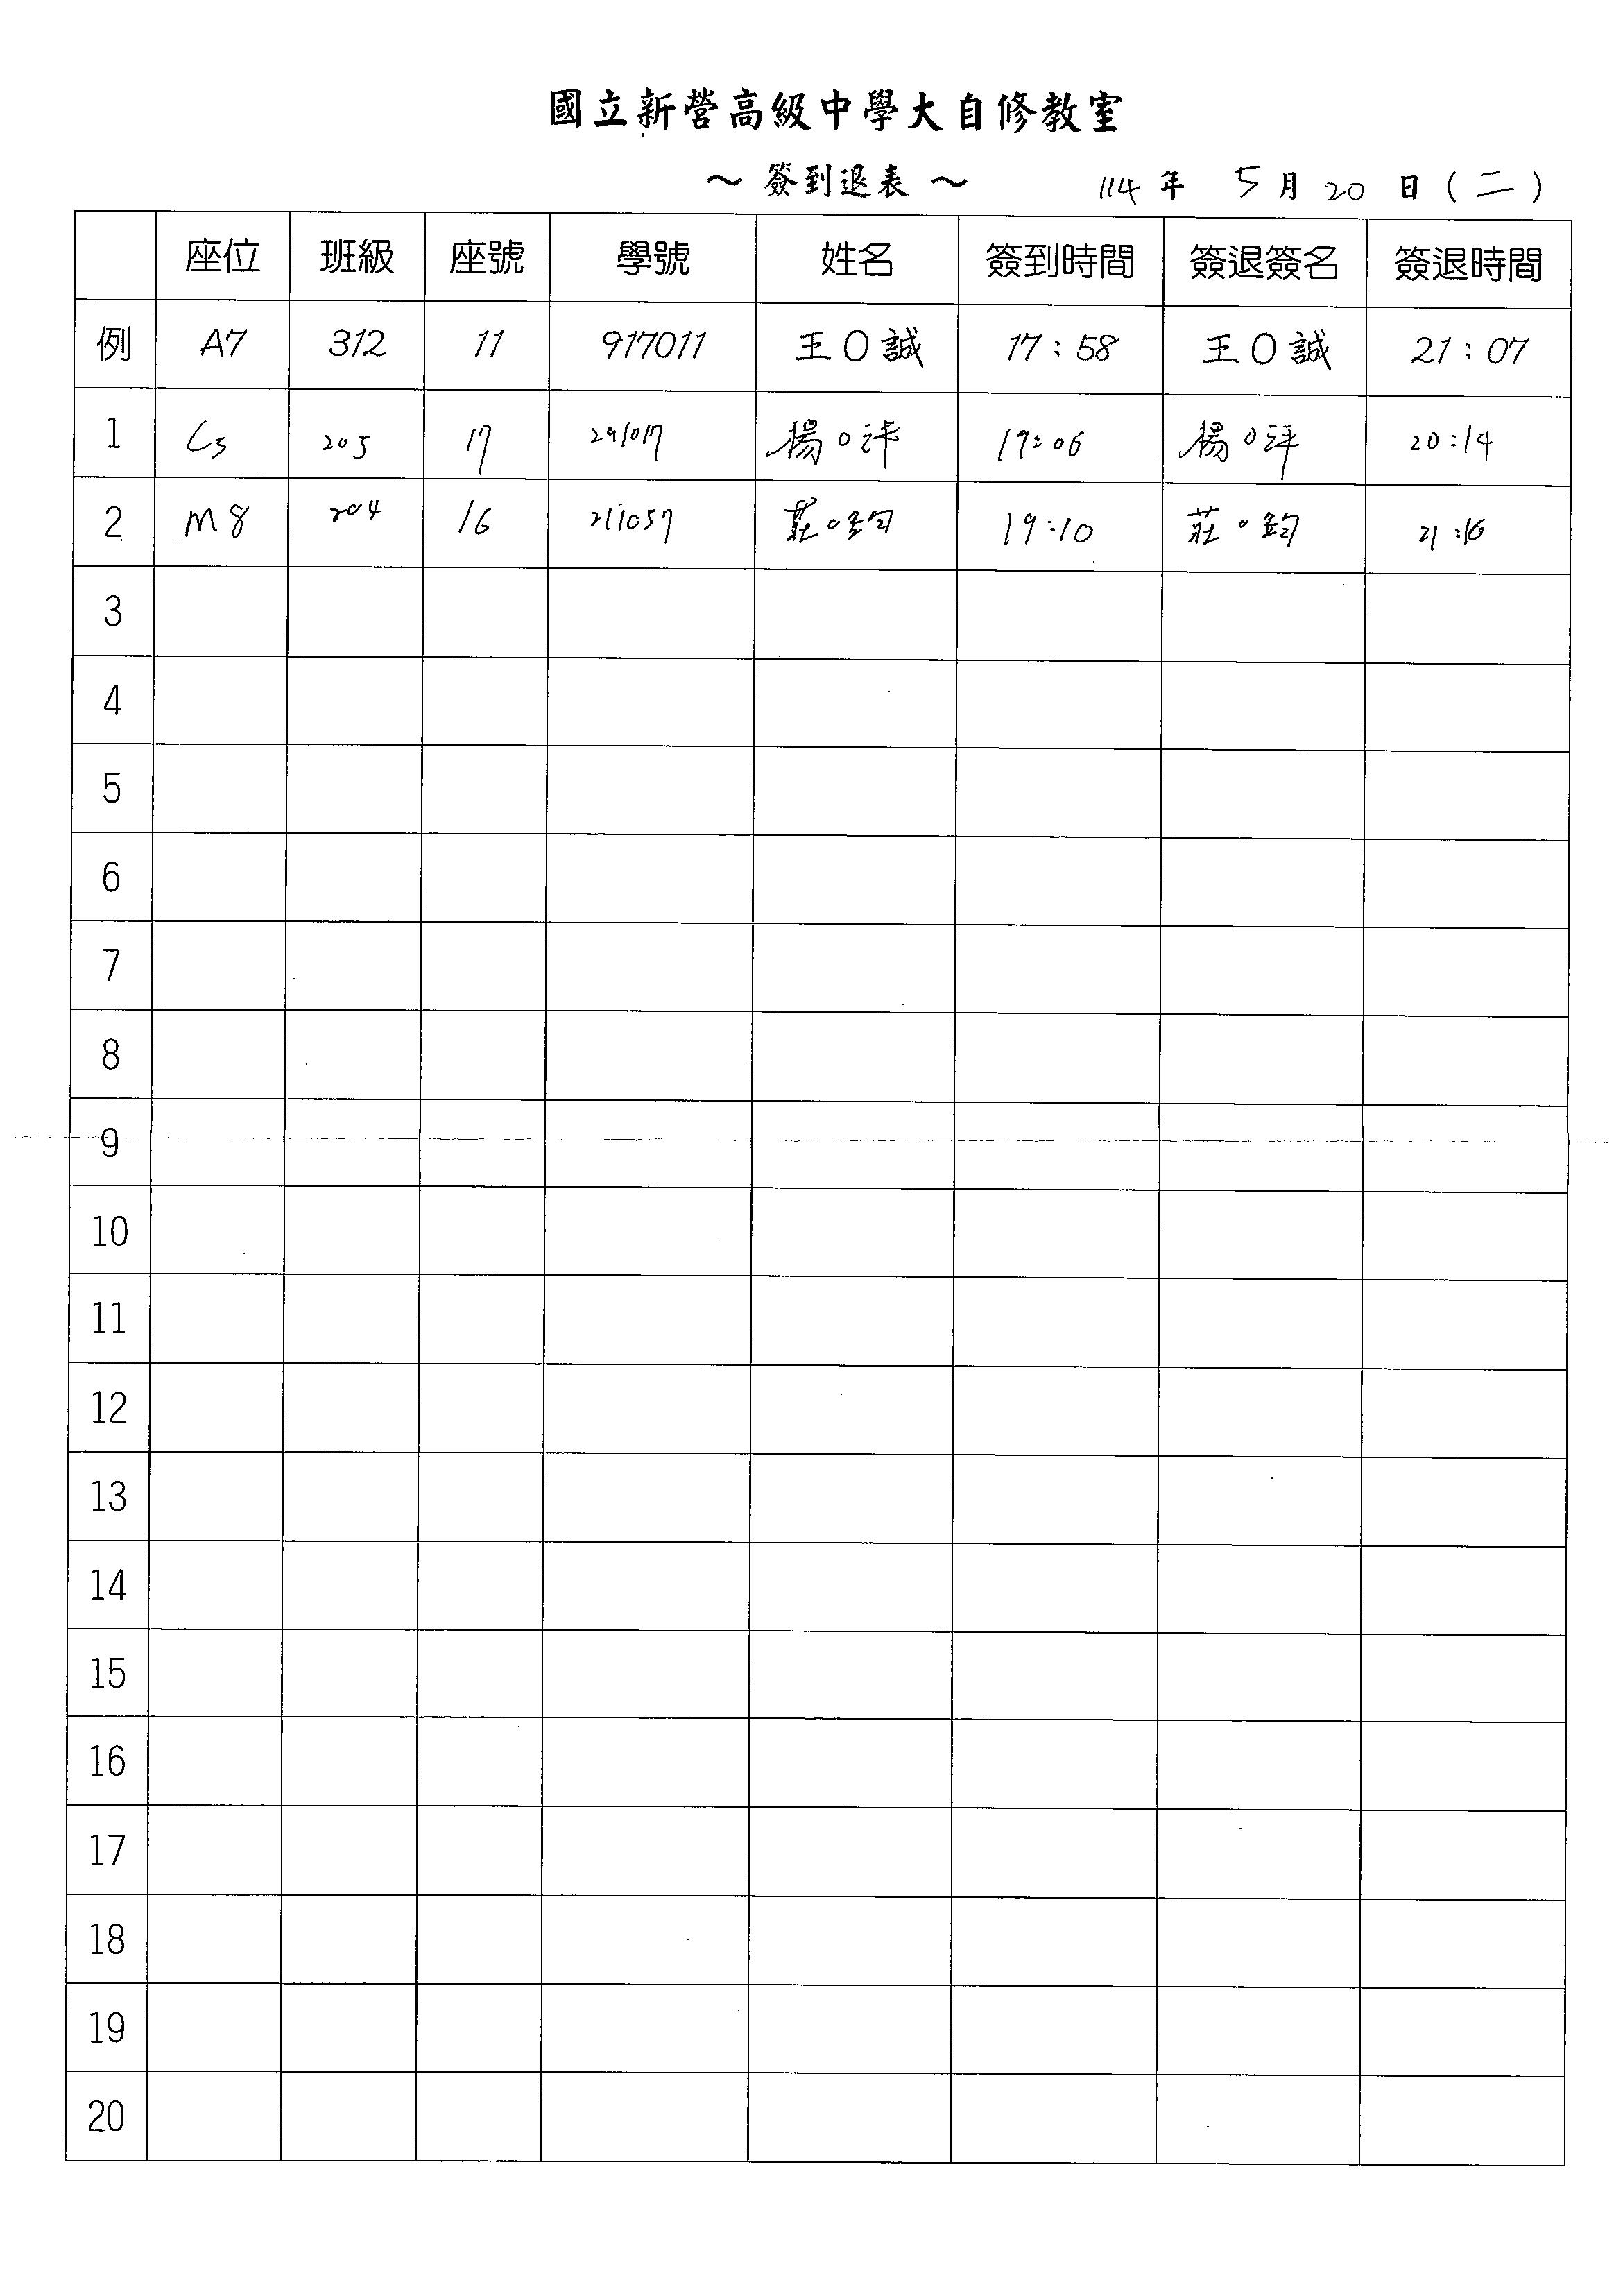 國立新營高級中學大自修教室
～ 簽到退表 ～ 114 年 5 月 20 日 ( 二 )
座位 班級 座號 學號 姓名 簽到時間 簽退簽名 簽退時間
例 A7 312 11 917011 王O誠 17:58 王O誠 21:07
1 C5 205 17 291017 楊O評 19:06 楊O評 20:14
2 M8 204 16 211057 莊O鈞 19:10 莊O鈞 21:16
3
4
5
6
7
8
9
10
11
12
13
14
15
16
17
18
19
20